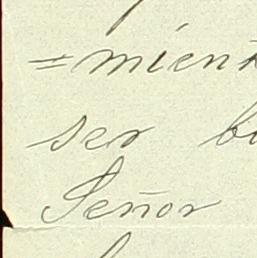 =mient
ser b
Señor